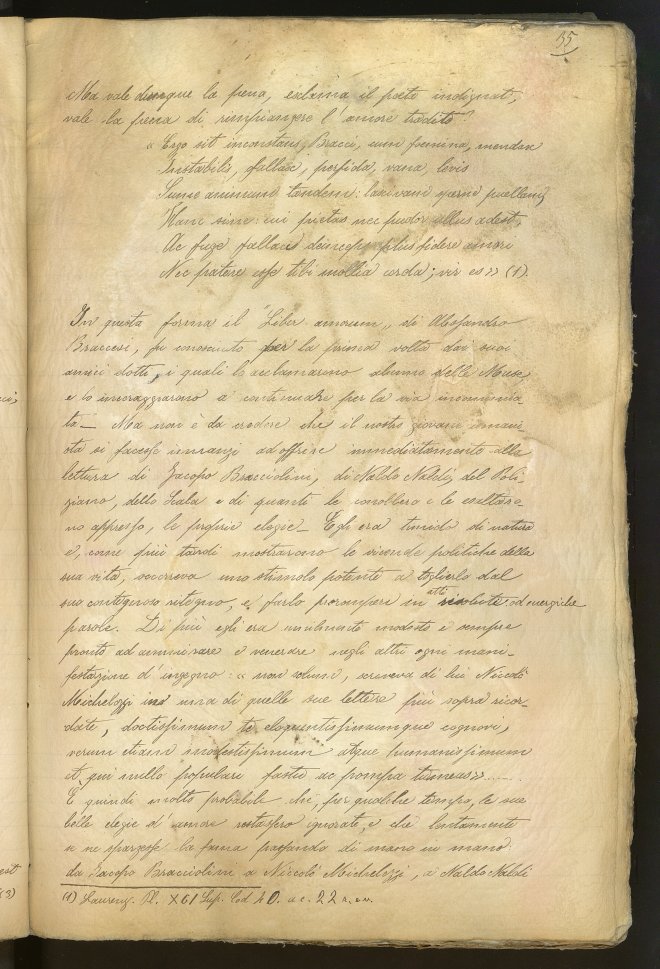 35
Ma vale dunque la pena, esclama il poeta indignato,
vale la pena di rimpiangere l'amore tradito?
« Ergo sit inconstans, Bracci, cum foemina, mendax
Instabilis, fallax, perfida, vana, levis
Sume animum tandem: lascivam sperne puellam,
Hanc sine: cui pietas nec pudor ullus adest,
Ac fuge fallaci deinceps plus fidere amori
Nec patere esse tibi mollia corda; vir es » (1).
In questa forma il "Liber amorum" di Alessandro
Braccesi, fu conosciuto per la prima volta dai suoi
amici dotti, i quali lo acclamarono alunno delle Muse,
e lo incoraggiarono a continuare per la via incomincia-
ta – Ma non è da credere che il nostro giovane umani-
sta si facesse innanzi ad offrire immediatamente alla
lettura di Jacopo Bracciolini, di Naldo Naldi, del Poli-
ziano, dello Scala e di quanti lo conobbero e lo esaltaro-
no appresso, le proprie elegie – Egli era timido di natura
e, come più tardi mostrarono le vicende politiche della
sua vita, occorreva uno stimolo potente a toglierlo dal
suo contegnoso ritegno, e farlo prorompere in atti risoluti od energiche
parole. Di più egli era umilmente modesto e sempre
pronto ad ammirare e venerare negli altri ogni mani-
festazione d'ingegno: « non solum, scriveva di lui Niccolò
Michelozzi in una di quelle sue lettere più sopra ricor-
date, doctissimum te eloquentissimumque cognovi,
verum etiam modestissimum atque humanissimum
et qui nullo populari fastu ac pompa tumeas » .....
È quindi molto probabile che, per qualche tempo, le sue
belle elegie d'amore restassero ignorate, e che lentamente
se ne spargesse la fama passando di mano in mano:
da Jacopo Bracciolini a Niccolò Michelozzi, a Naldo Naldi
(1) Laurenz. Pl. XCI Sup. Cod 40. a c. 22 r. e v.